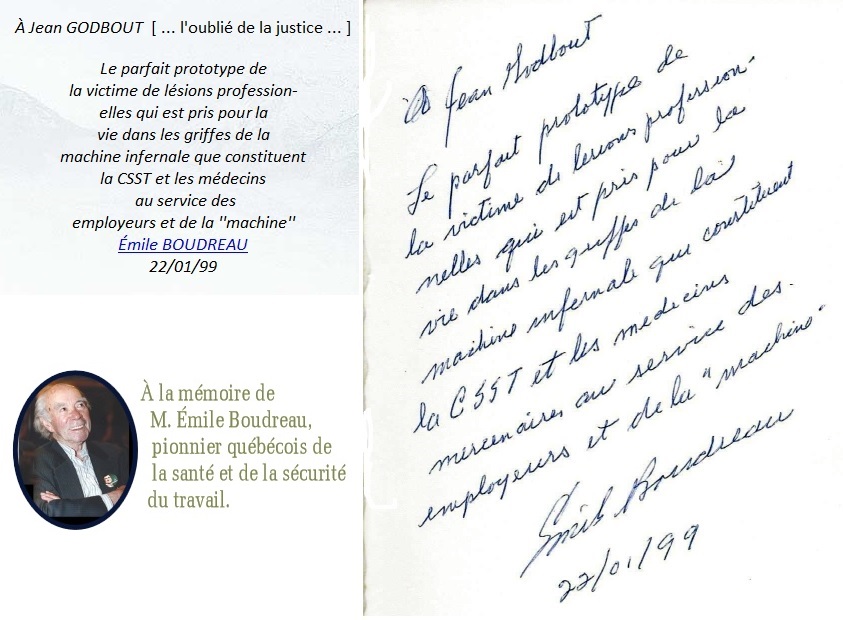 À Jean GODBOUT [ ... l'oublié de la justice ... ]
Le parfait prototype de
la victime de lésions profession-
elles qui est pris pour la
vie dans les griffes de la
machine infernale que constituent
la CSST et les médecins
au service des
employeurs et de la ''machine''
Émile BOUDREAU
22/01/99
À la mémoire de
M. Émile Boudreau,
pionnier québécois de
la santé et de la sécurité
du travail.
À Jean Godbout
Le parfait prototype de
la victime de lésions profession-
nelles qui est pris pour la
vie dans les griffes de la
machine infernale que constituent
la CSST et les medecins
mercenaires au service des
employeurs et de la "machine"
Émile Boudreau
22/01/99